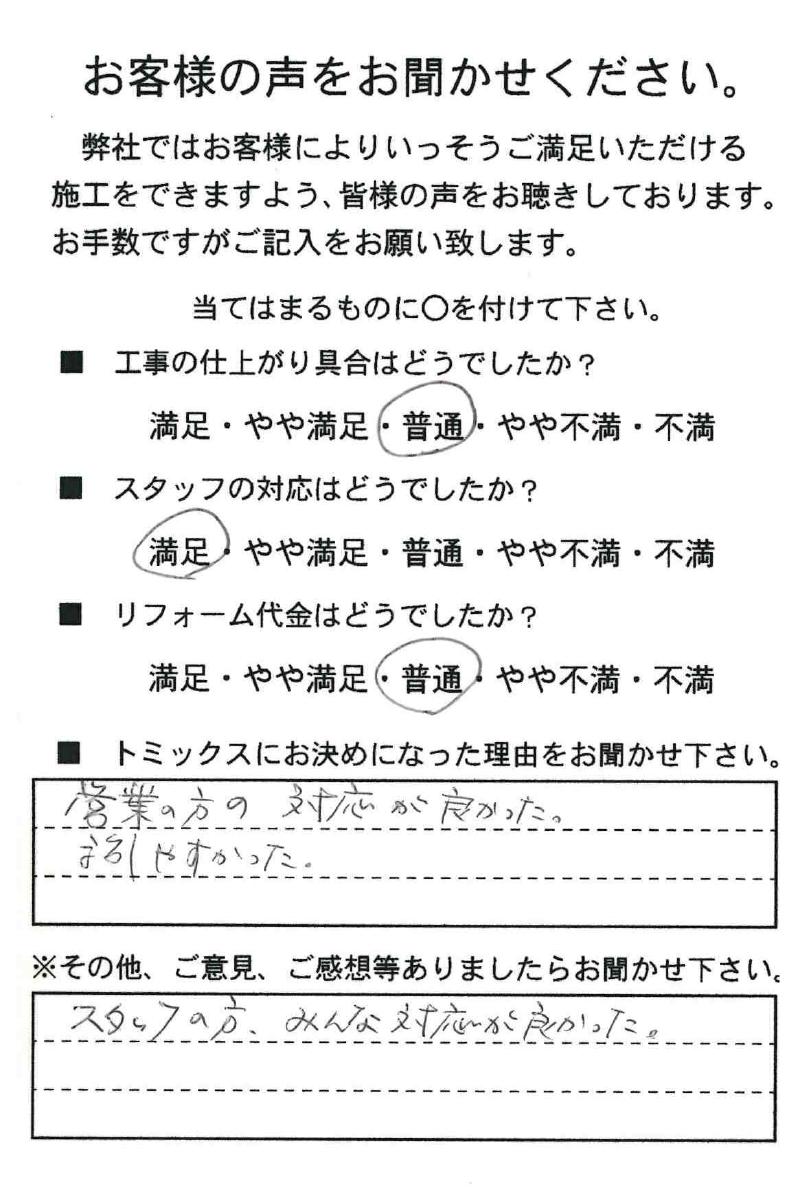 お客様の声をお聞かせください。
弊社ではお客様によりいっそうご満足いただける
施工をできますよう、皆様の声をお聴きしております。
お手数ですがご記入をお願い致します。
当てはまるものに〇を付けて下さい。
■ 工事の仕上がり具合はどうでしたか？
満足・やや満足・普通・やや不満・不満
■ スタッフの対応はどうでしたか？
満足・やや満足・普通・やや不満・不満
■ リフォーム代金はどうでしたか？
満足・やや満足・普通・やや不満・不満
■ トミックスにお決めになった理由をお聞かせ下さい。
営業の方の対応が良かった。
話しやすかった。
※その他、ご意見、ご感想等ありましたらお聞かせ下さい。
スタッフの方、みんな対応が良かった。